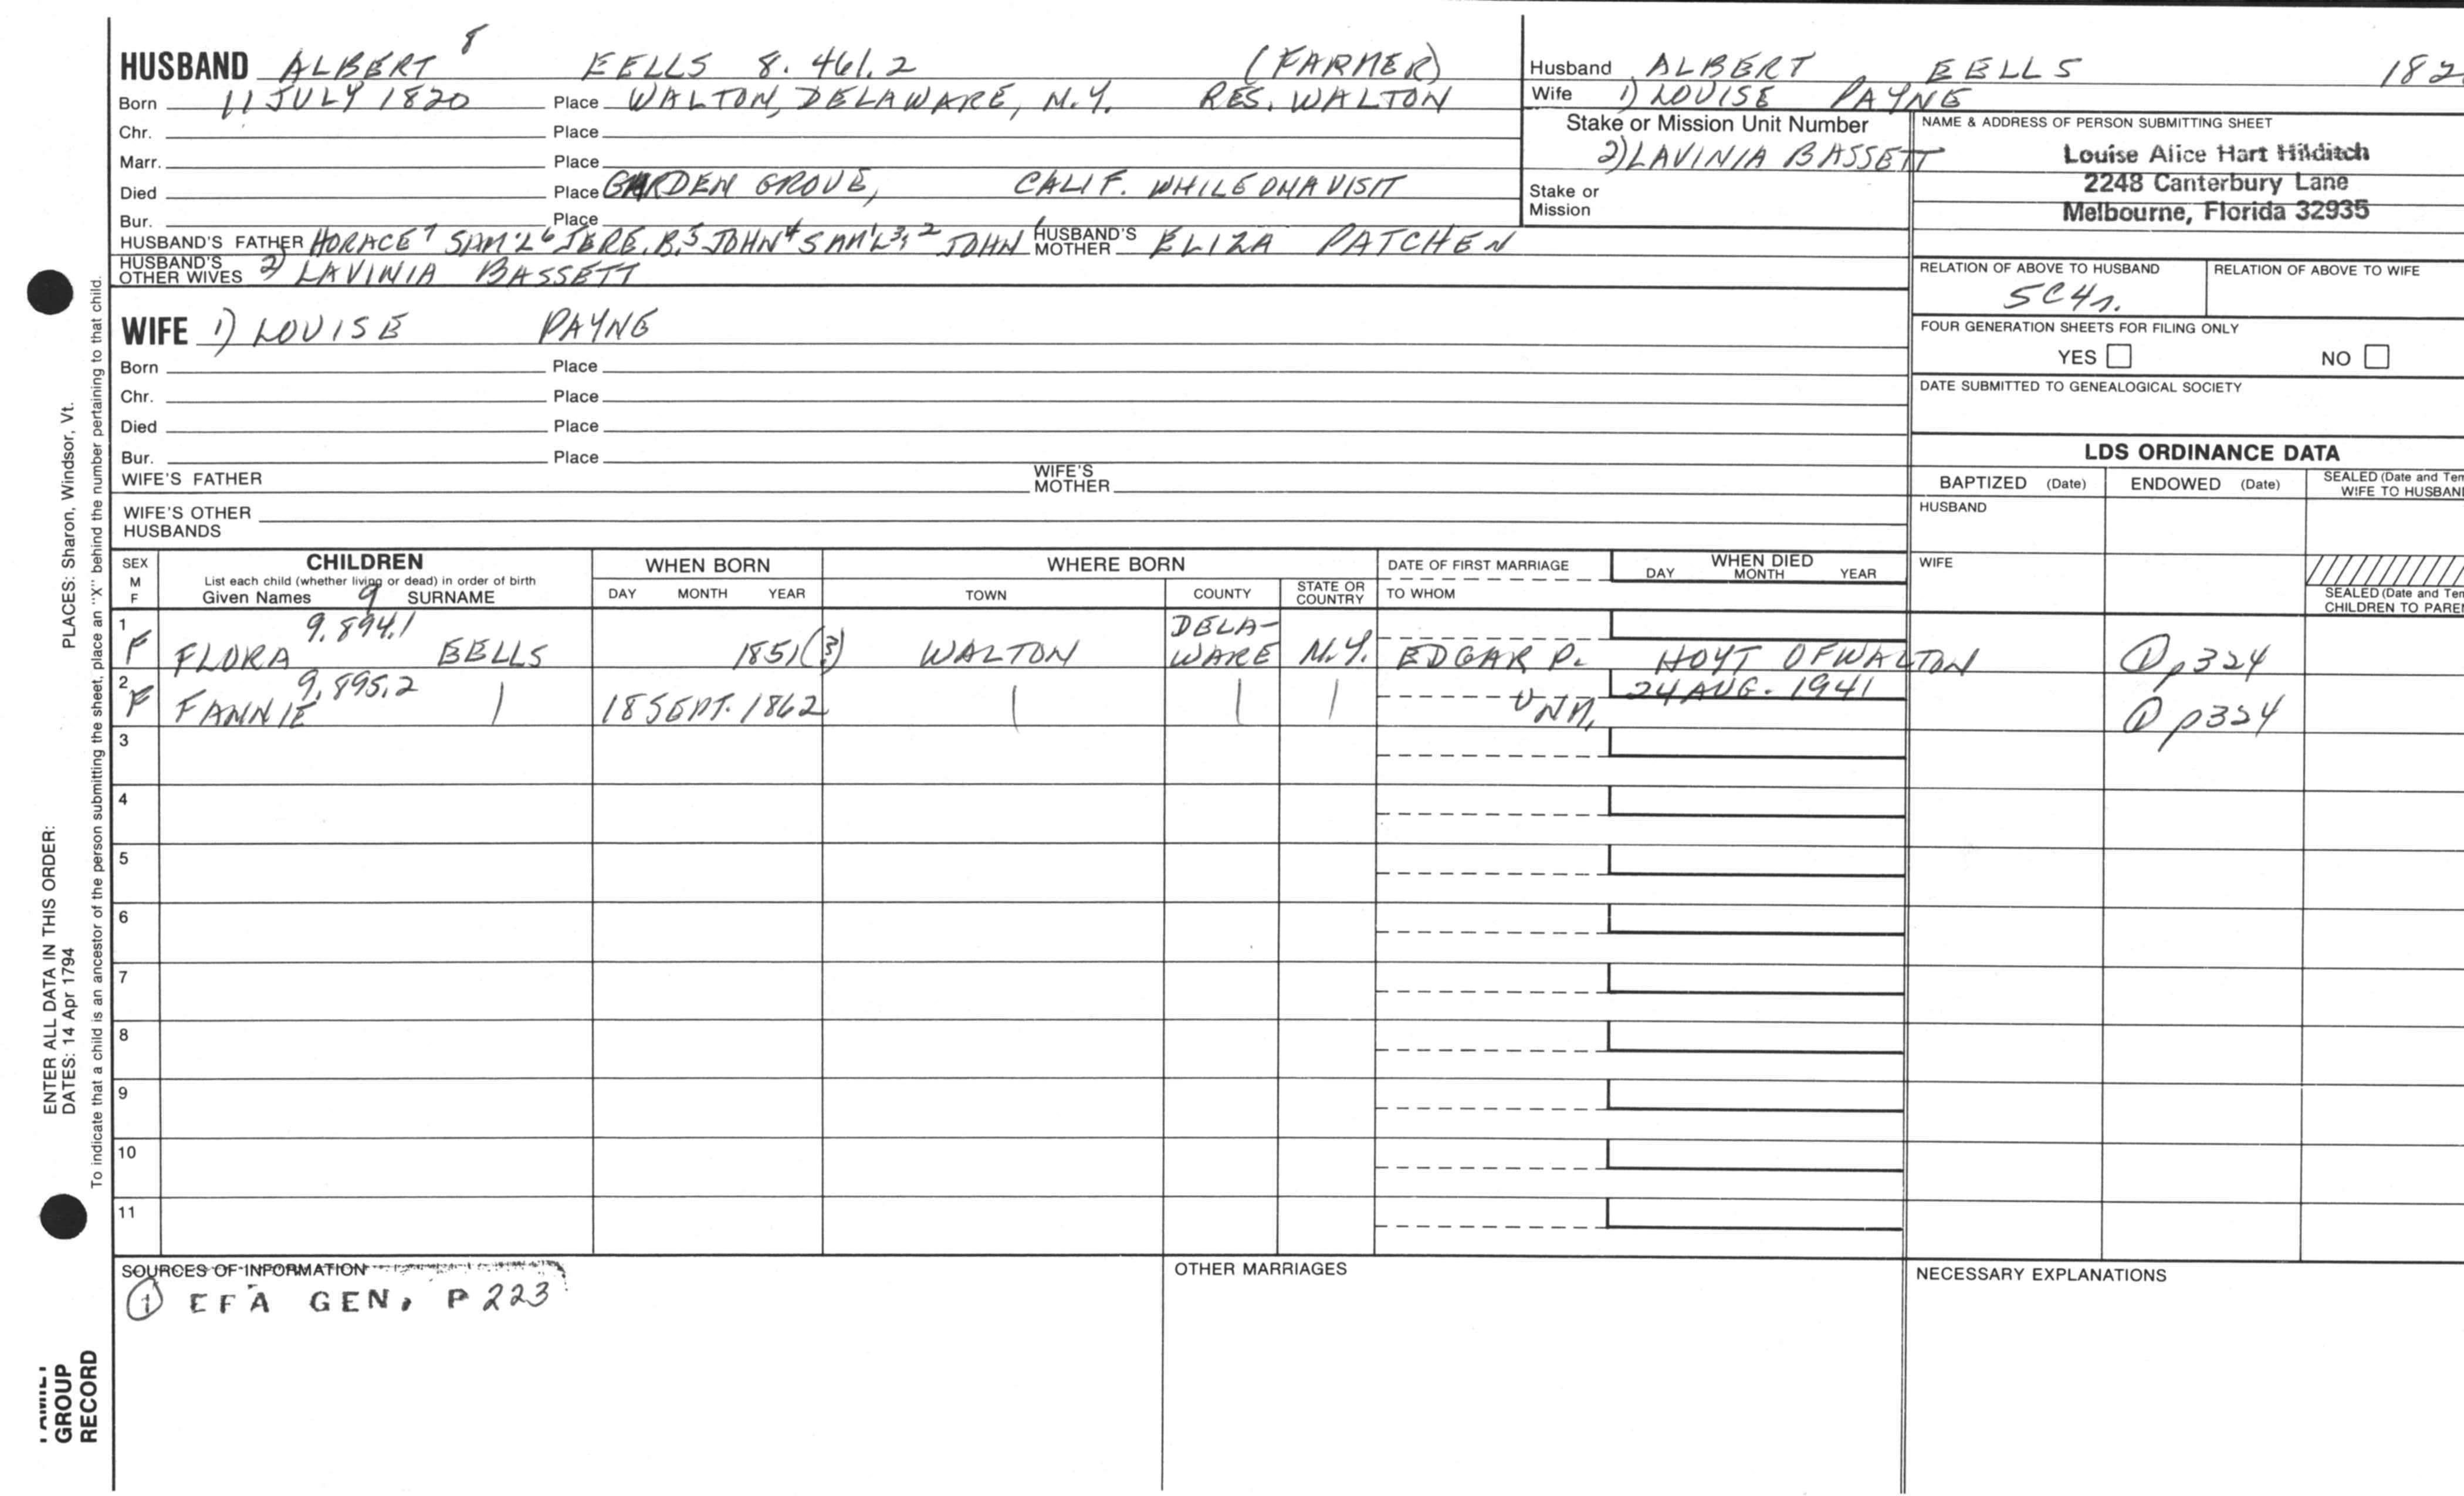 HUSBAND ALBERT 8 EELLS 8.461.2 (FARMER)
Born 11 JULY 1820 Place WALTON, DELAWARE, N.Y. RES. WALTON
Chr. Place
Marr. Place
Died Place GARDEN GROVE, CALIF. WHILE ON A VISIT
Bur. Place
HUSBAND'S FATHER HORACE 7 SAM'L 6 JERE. B. 5 JOHN 4 SAM'L 3, 2 JOHN HUSBAND'S MOTHER ELIZA PATCHEN
HUSBAND'S OTHER WIVES 2) LAVINIA BASSETT
WIFE 1) LOUISE PAYNE
Born Place
Chr. Place
Died Place
Bur. Place
WIFE'S FATHER WIFE'S MOTHER
WIFE'S OTHER HUSBANDS
Husband ALBERT EELLS 182
Wife 1) LOUISE PAYNE
Stake or Mission Unit Number
2) LAVINIA BASSETT
Stake or Mission
NAME & ADDRESS OF PERSON SUBMITTING SHEET
Louise Alice Hart Hilditch
2248 Canterbury Lane
Melbourne, Florida 32935
RELATION OF ABOVE TO HUSBAND RELATION OF ABOVE TO WIFE
5C4r.
FOUR GENERATION SHEETS FOR FILING ONLY
YES NO
DATE SUBMITTED TO GENEALOGICAL SOCIETY
LDS ORDINANCE DATA
BAPTIZED (Date) ENDOWED (Date) SEALED (Date and Tem
WIFE TO HUSBAN
HUSBAND
WIFE
SEALED (Date and Tem
CHILDREN TO PARE
SEX M F CHILDREN WHEN BORN WHERE BORN DATE OF FIRST MARRIAGE WHEN DIED
List each child (whether living or dead) in order of birth
Given Names 9 SURNAME DAY MONTH YEAR TOWN COUNTY STATE OR COUNTRY TO WHOM DAY MONTH YEAR
1 9.894.1
F FLORA EELLS 1851(?) WALTON DELA-WARE N.Y. EDGAR P. HOYT OF WALTON ① p324
2 9.895.2 24 AUG. 1941
F FANNIE | 18 SEPT. 1862 | | | UNM. ① p324
3
4
5
6
7
8
9
10
11
SOURCES OF INFORMATION OTHER MARRIAGES NECESSARY EXPLANATIONS
① EFA GEN, P 223
PLACES: Sharon, Windsor, Vt.
To indicate that a child is an ancestor of the person submitting the sheet, place an "X" behind the number pertaining to that child.
ENTER ALL DATA IN THIS ORDER:
DATES: 14 Apr 1794
FAMILY
GROUP
RECORD